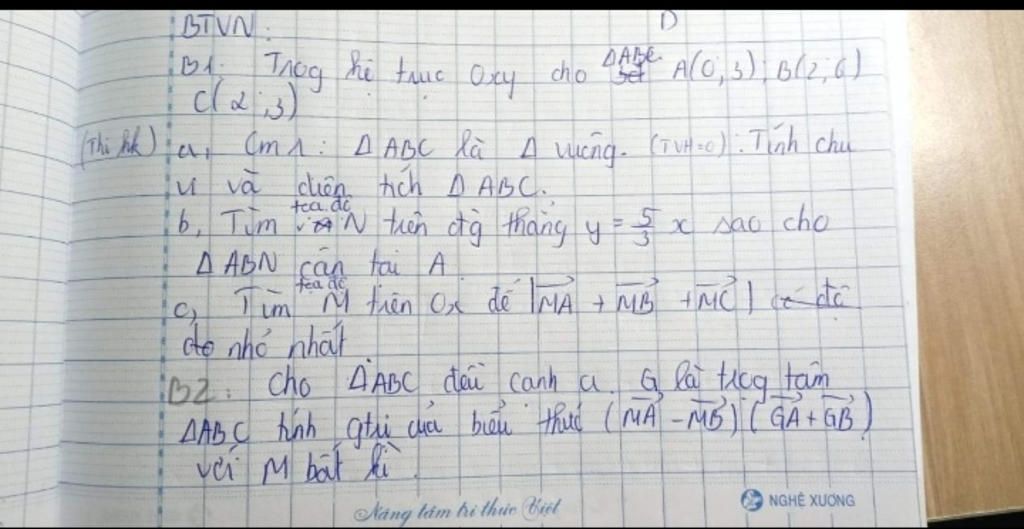 D
BTVN:
B1. Trog hệ trục Oxy cho ΔABC A(0;3); B(2;6)
C(2;3)
(Thi hk) a, Cm1: ΔABC là Δ vuông. (TVH=0). Tính chu
vi và diện tích ΔABC.
b, Tìm tọa độ N trên đtg thẳng y = 5/3 x sao cho
ΔABN cân tại A
c, Tìm tọa độ M trên Ox để |MA + MB + MC|
nhỏ nhất
B2: Cho ΔABC đều cạnh a. G là trog tâm
ΔABC tính gtri của biểu thức (MA - MB)(GA + GB)
với M bất kì.
Nâng tầm tri thức Việt
NGHỆ XƯƠNG